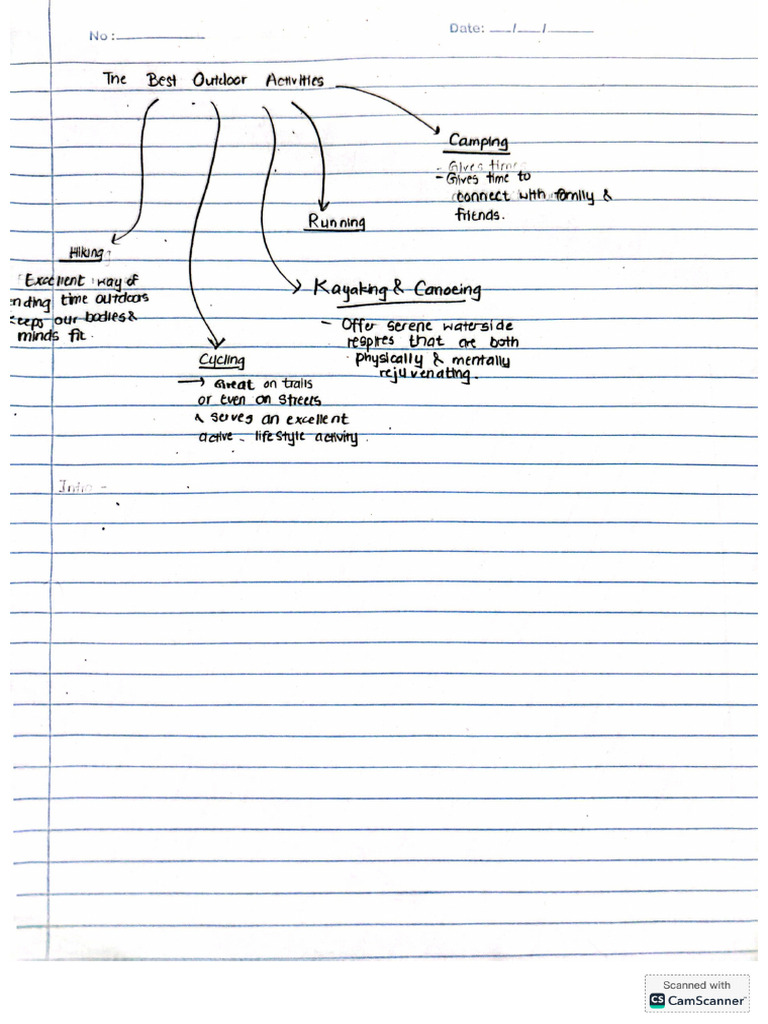 No :
Date: __/__/__
The Best Outdoor Activities
Camping
- Gives time
- Gives time to
connect with family &
friends.
Running
Hiking
Excellent way of
nding time outdoors
keeps our bodies &
minds fit.
Kayaking & Canoeing
- Offer serene waterside
respires that are both
physically & mentally
rejuvenating.
Cycling
→ Great on trails
or even on streets
& serves an excellent
active - lifestyle activity.
Intro -
Scanned with
CS CamScanner